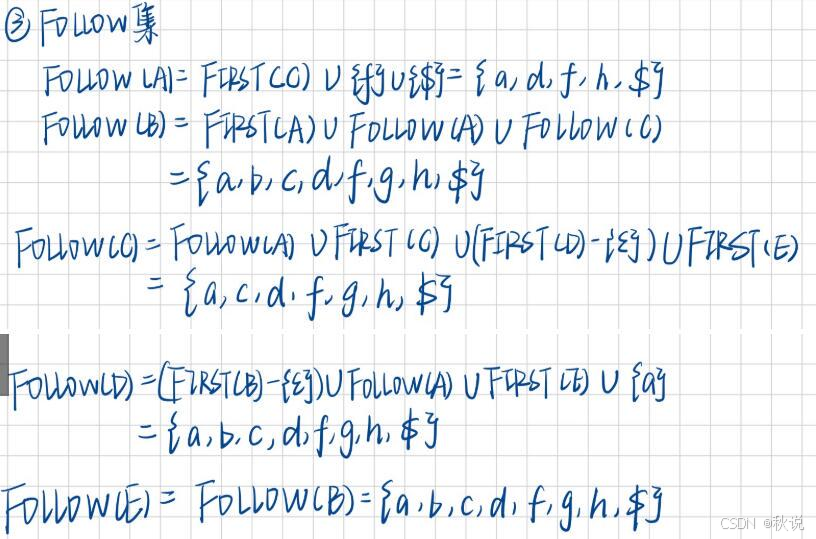 ③ FOLLOW集
FOLLOW(A)= FIRST(C) ∪ {f}∪{$}= {a,d,f,h,$}
FOLLOW(B)= FIRST(A)∪ FOLLOW(A)∪ FOLLOW(C)
={a,b,c,d,f,g,h,$}
FOLLOW(C)= FOLLOW(A) ∪FIRST(C) ∪(FIRST(D)-{ε})∪FIRST(E)
= {a,c,d,f,g,h,$}
FOLLOW(D)=(FIRST(B)-{ε})∪FOLLOW(A) ∪FIRST(E) ∪ {a}
={a,b,c,d,f,g,h,$}
FOLLOW(E)= FOLLOW(B)={a,b,c,d,f,g,h,$}
CSDN @秋说